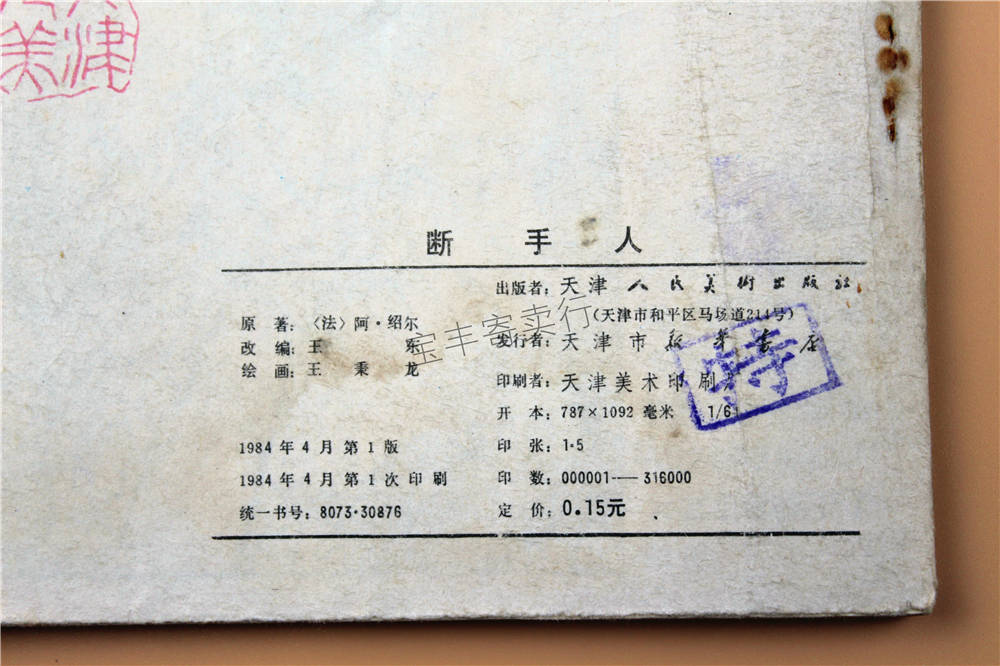 美津
断手人
原著：〈法〉阿·绍尔
改编：王东
绘画：王秉龙
1984年4月第1版
1984年4月第1次印刷
统一书号：8073·30876
出版者：天津人民美術出版社
（天津市和平区马场道214号）
发行者：天津市新华書店
印刷者：天津美术印刷
开本：787×1092毫米 1/6
印张：1·5
印数：000001——316000
定价：0.15元
特
宝丰寄卖行